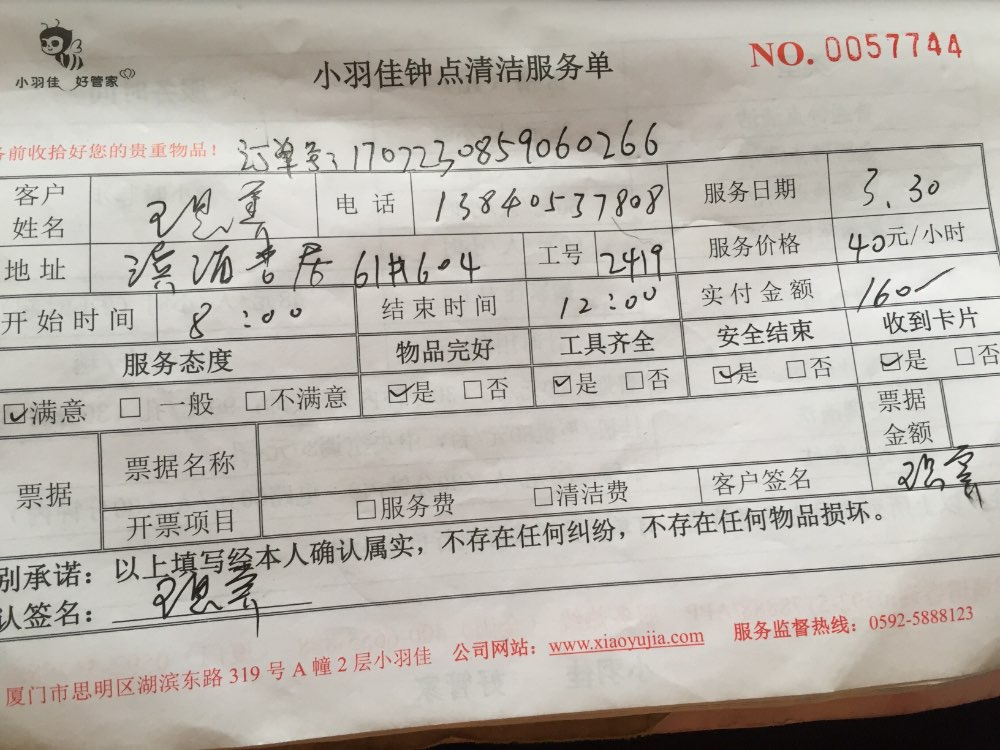 小羽佳 好管家
小羽佳钟点清洁服务单
NO. 0057744
务前收拾好您的贵重物品！
订单号：1707230859060266
客户姓名 电话 13840537808 服务日期 3.30
地址 61#604 工号 2419 服务价格 40元/小时
开始时间 8:00 结束时间 12:00 实付金额 160
服务态度 物品完好 工具齐全 安全结束 收到卡片
☑满意 □一般 □不满意 ☑是 □否 ☑是 □否 ☑是 □否 ☑是 □否
票据 票据名称 票据金额
开票项目 □服务费 □清洁费 客户签名
别承诺：以上填写经本人确认属实，不存在任何纠纷，不存在任何物品损坏。
认签名：
厦门市思明区湖滨东路319号A幢2层小羽佳 公司网站：www.xiaoyujia.com 服务监督热线：0592-5888123